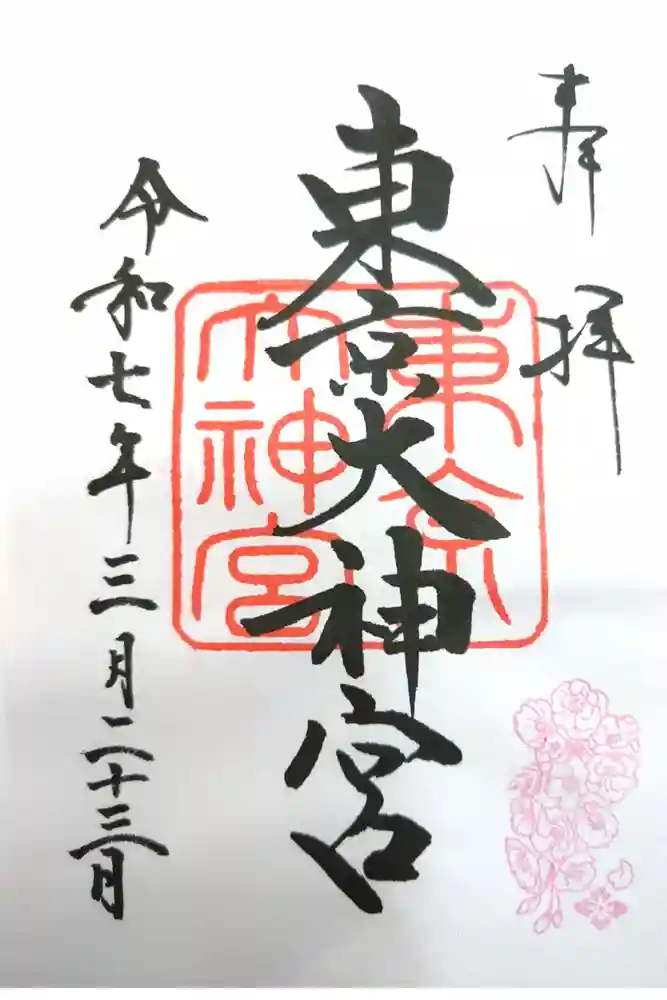 奉拝
東京大神宮
令和七年三月二十三日
東京
大神宮